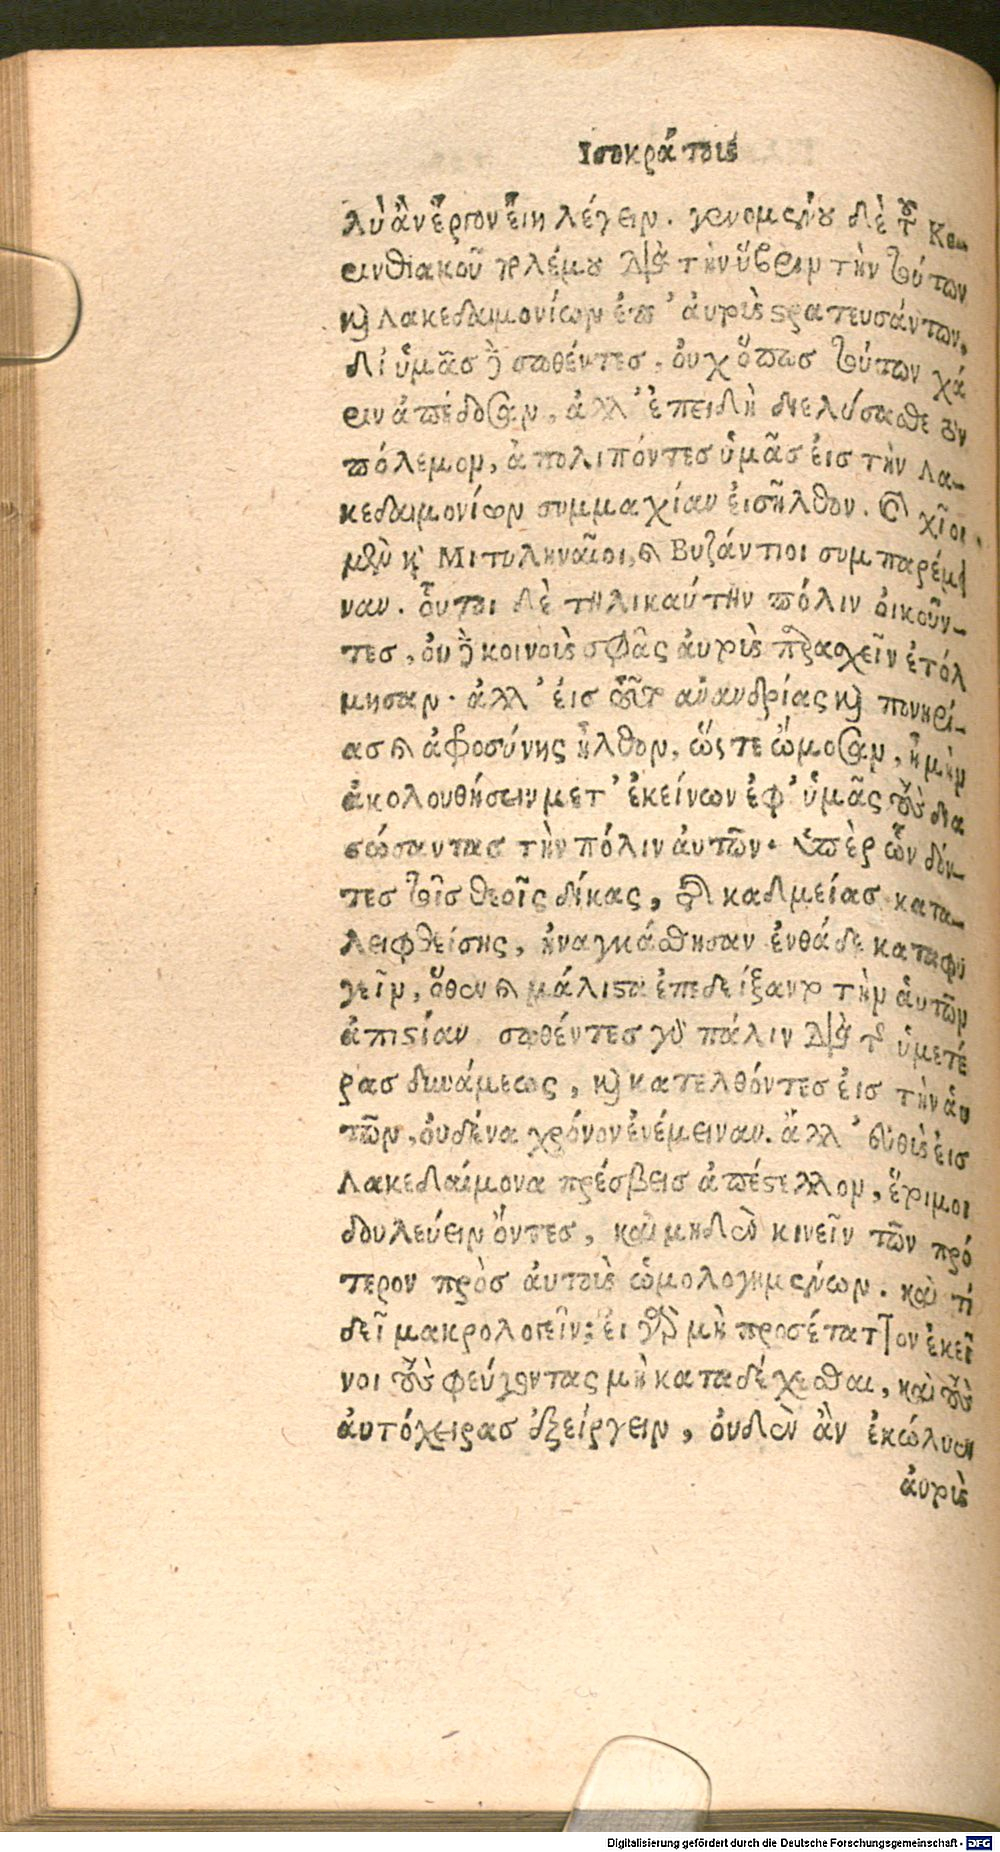 Ισοκράτους
λὺ ἂν ἔργον εἴη λέγειν. γενομένου δὲ τοῦ Κο-
ρινθιακοῦ πολέμου διὰ τὴν ὕβριν τὴν τούτων
καὶ Λακεδαιμονίων ἐπ' αὐτοὺς στρατευσάντων,
δι' ὑμᾶς δὲ σωθέντες, οὐχ ὅπως τούτων χά
ριν ἀπέδοσαν, ἀλλ' ἐπειδὴ διελύσασθε τὸν
πόλεμον, ἀπολιπόντες ὑμᾶς εἰς τὴν Λα-
κεδαιμονίων συμμαχίαν εἰσῆλθον. καὶ χῖοι
μὲν καὶ Μιτυληναῖοι, καὶ Βυζάντιοι συμπαρέμει
ναν. οὗτοι δὲ τηλικαύτην πόλιν οἰκοῦν-
τες, οὐδὲ κοινοὺς σφᾶς αὐτοὺς παρασχεῖν ἐτόλ
μησαν. ἀλλ' εἰς τοῦτο ἀνανδρίας καὶ πονηρί-
ας καὶ ἀφροσύνης ἦλθον, ὥστε ὤμοσαν, ἦ μὴν
ἀκολουθήσειν μετ' ἐκείνων ἐφ' ὑμᾶς τοὺς δια
σώσαντας τὴν πόλιν αὐτῶν. ὑπὲρ ὧν δόν-
τες τοῖς θεοῖς δίκας, καὶ τῆς καδμείας κατα-
λειφθείσης, ἠναγκάσθησαν ἐνθάδε καταφυ
γεῖν, ὅθεν καὶ μάλιστα ἐπεδείξαντο τὴν αὑτῶν
ἀπιστίαν σωθέντες γὰρ πάλιν διὰ τῆς ὑμετέ
ρας δυνάμεως, καὶ κατελθόντες εἰς τὴν αὑ
τῶν, οὐδένα χρόνον ἐνέμειναν. ἀλλ' εὐθὺς εἰς
Λακεδαίμονα πρέσβεις ἀπέστελλον, ἕτοιμοι
δουλεύειν ὄντες, καὶ μηδὲν κινεῖν τῶν πρό
τερον πρὸς αὐτοὺς ὡμολογημένων. καὶ τί
δεῖ μακρολογεῖν; εἰ γὰρ μὴ προσέταττον ἐκεῖ
νοι τοὺς φεύγοντας μὴ καταδέχεσθαι, καὶ τοὺς
αὐτόχειρας ἐξείργειν, οὐδὲν ἂν ἐκώλυσεν
αὐτοὺς
Digitalisierung gefördert durch die Deutsche Forschungsgemeinschaft - DFG